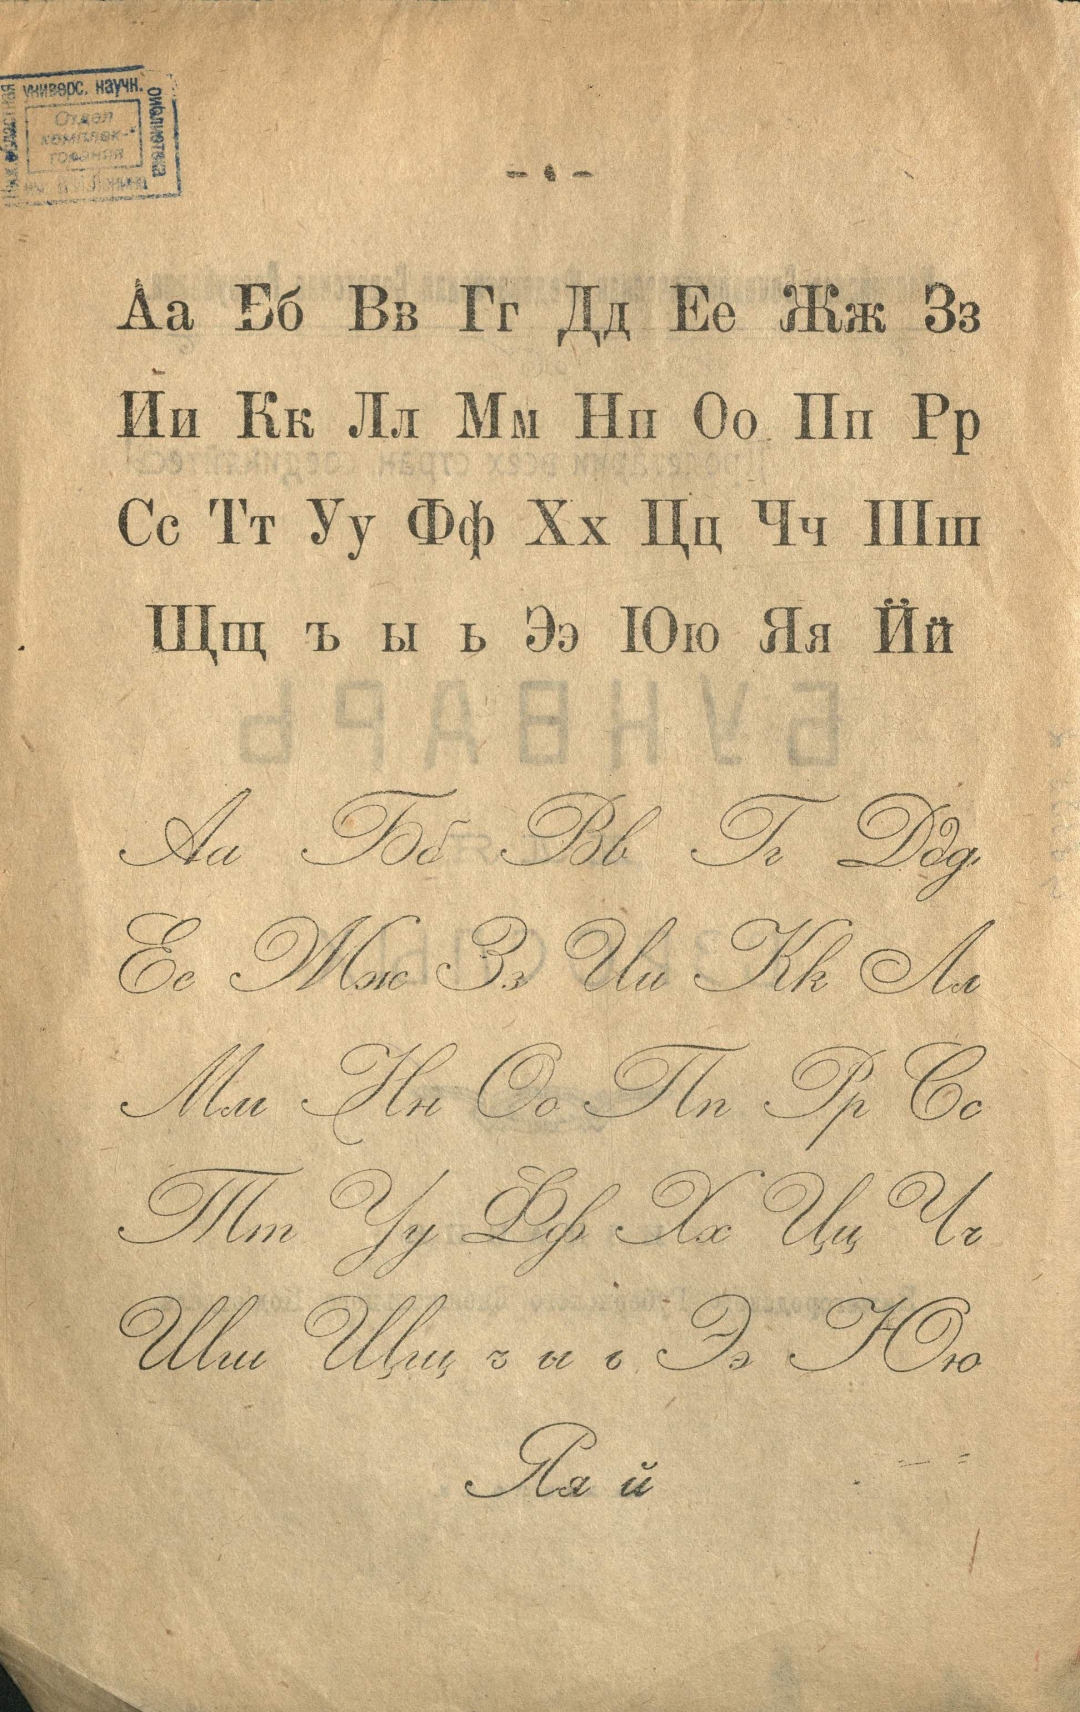 универс. научн.
библиотека
Отдел
комплек-
тования
- 4 -
Аа Бб Вв Гг Дд Ее Жж Зз
Ии Кк Лл Мм Нн Оо Пп Рр
Сс Тт Уу Фф Хх Цц Чч Шш
Щщ ъ ы ь Ээ Юю Яя Йй
Аа Бб Вв Гг Ддд
Ее Жж Зз Ии Кк Лл
Мм Нн Оо Пп Рр Сс
Тт Уу Фф Хх Цц Чч
Шш Щщ ъ ы ь Ээ Юю
Яя й